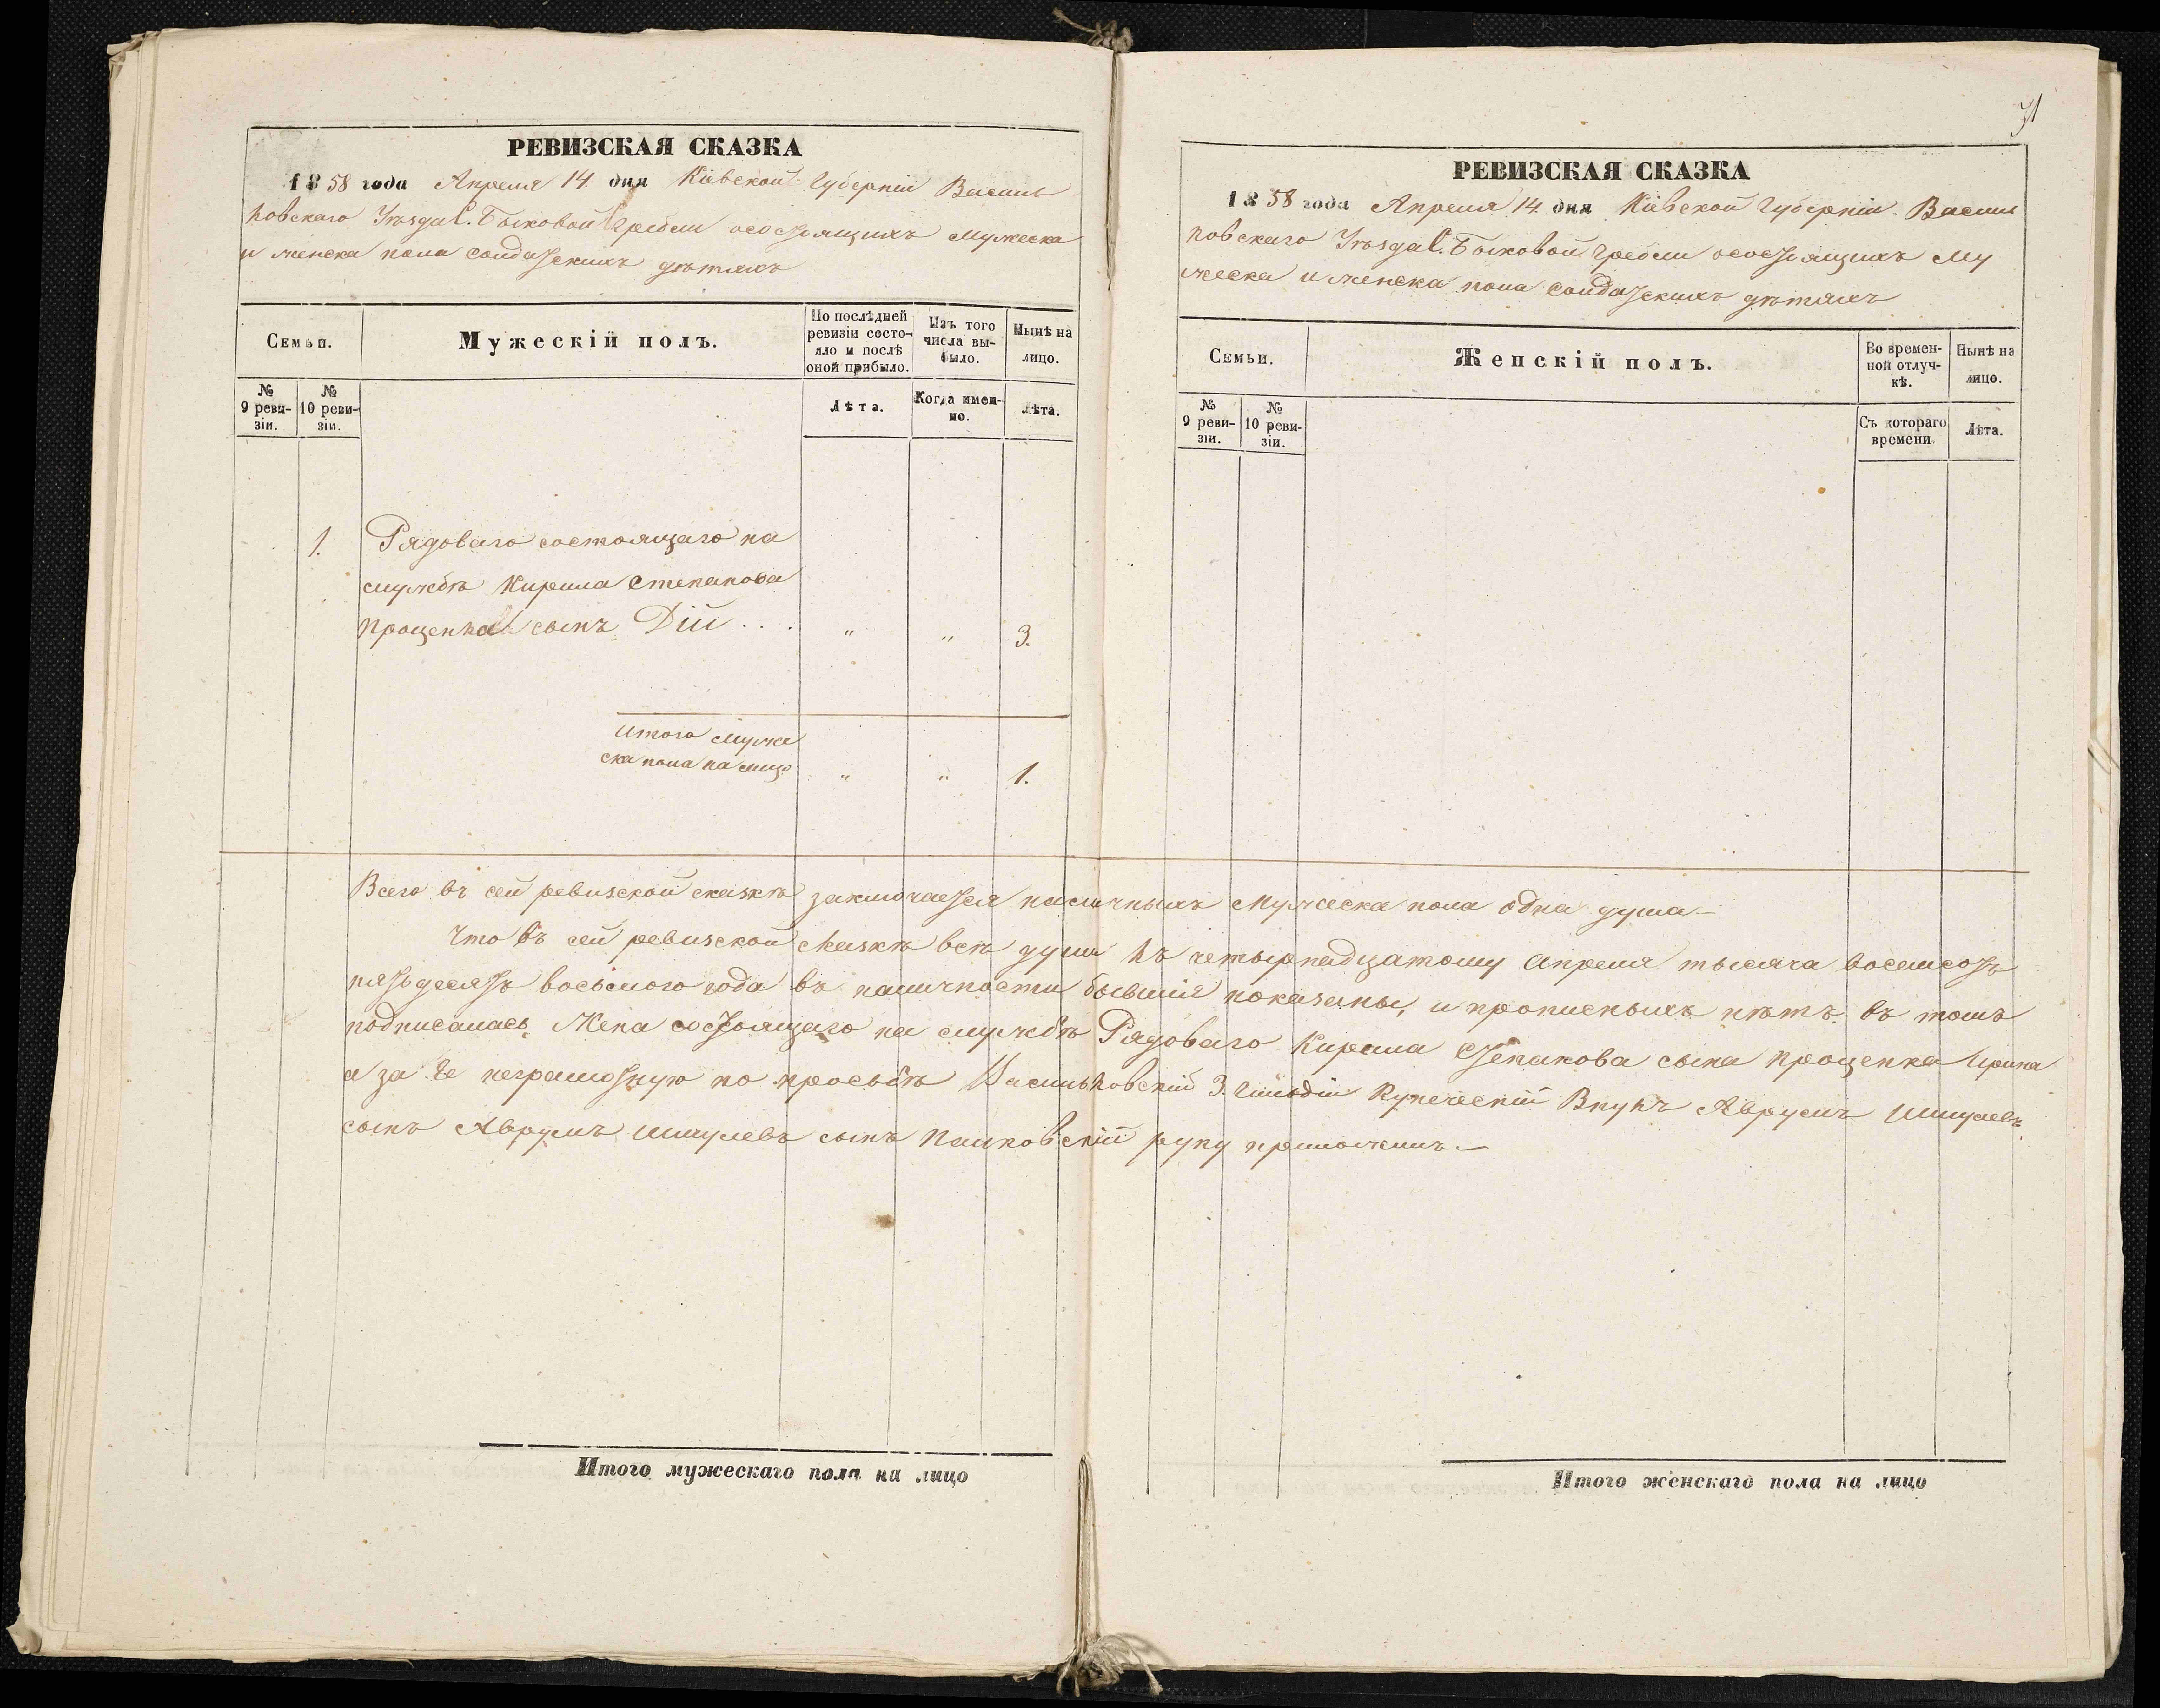 РЕВИЗСКАЯ СКАЗКА
1858 года Апреля 14. дня Кіевской Губерніи Василь
ковскаго Уѣзда С. Быковой Гребли осостоящихъ мужеска
и женска пола солдатскихъ дѣтяхъ
Семьи.
Мужескій полъ.
По послѣдней ревизіи состояло и послѣ оной прибыло.
Изъ того числа выбыло.
Нынѣ на лицо.
№ 9 ревизіи.
№ 10 ревизіи.
Лѣта.
Когда именно.
Лѣта.
1. Рядоваго состоящаго на
службѣ Кирила Степанова
Проценка сынъ Дій . . . " " 3.
Итого муже
ска пола на лицо " " 1.
31
РЕВИЗСКАЯ СКАЗКА
1858 года Апреля 14. дня Кіевской Губерніи Василь
ковскаго Уѣзда С. Быковой Гребли осостоящихъ му
жеска и женска пола солдатскихъ дѣтяхъ
Семьи.
Женскій полъ.
Во временной отлучкѣ.
Нынѣ на лицо.
№ 9 ревизіи.
№ 10 ревизіи.
Съ котораго времени.
Лѣта.
Всего въ сей ревизской сказкѣ заключается наличныхъ мужеска пола одна душа—
Что въ сей ревизской сказкѣ всѣ души къ четырнадцатому апреля тысяча восемсотъ
пятьдесятъ восьмого года въ наличности бывшія показаны, и прописныхъ нѣтъ. въ томъ
подписалась. Жена состоящаго на службѣ Рядоваго Кирила Степанова сына Проценка Ирина
а за Ее неграмотную по прозьбѣ Васильковскій 3. Гильдіи Купеческій Внукъ Аврумъ Шмулевъ
сынъ Аврумъ Шмулевъ сынъ руку приложилъ.—
Итого мужескаго пола на лицо
Итого женскаго пола на лицо